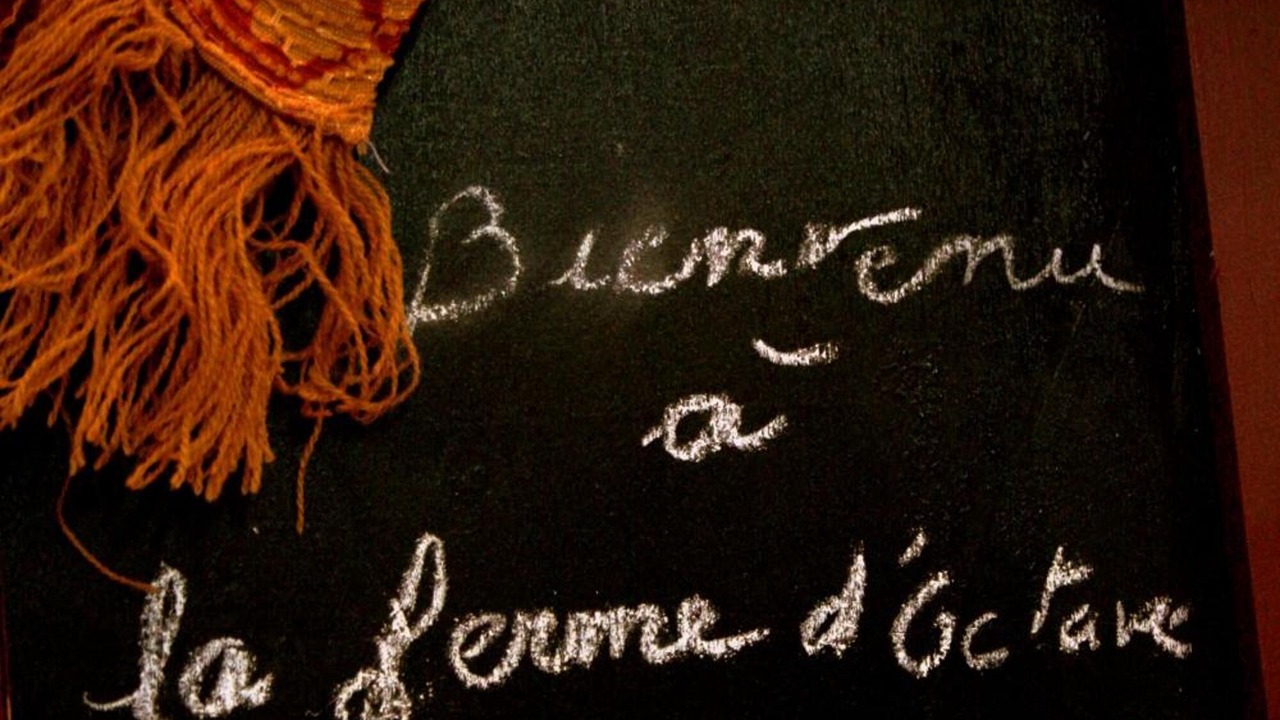 Bienvenu
à
la ferme d'Octave